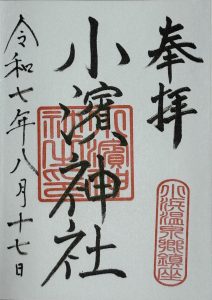 奉拝
小浜温泉郷鎮座
小濱神社
令和七年八月十七日